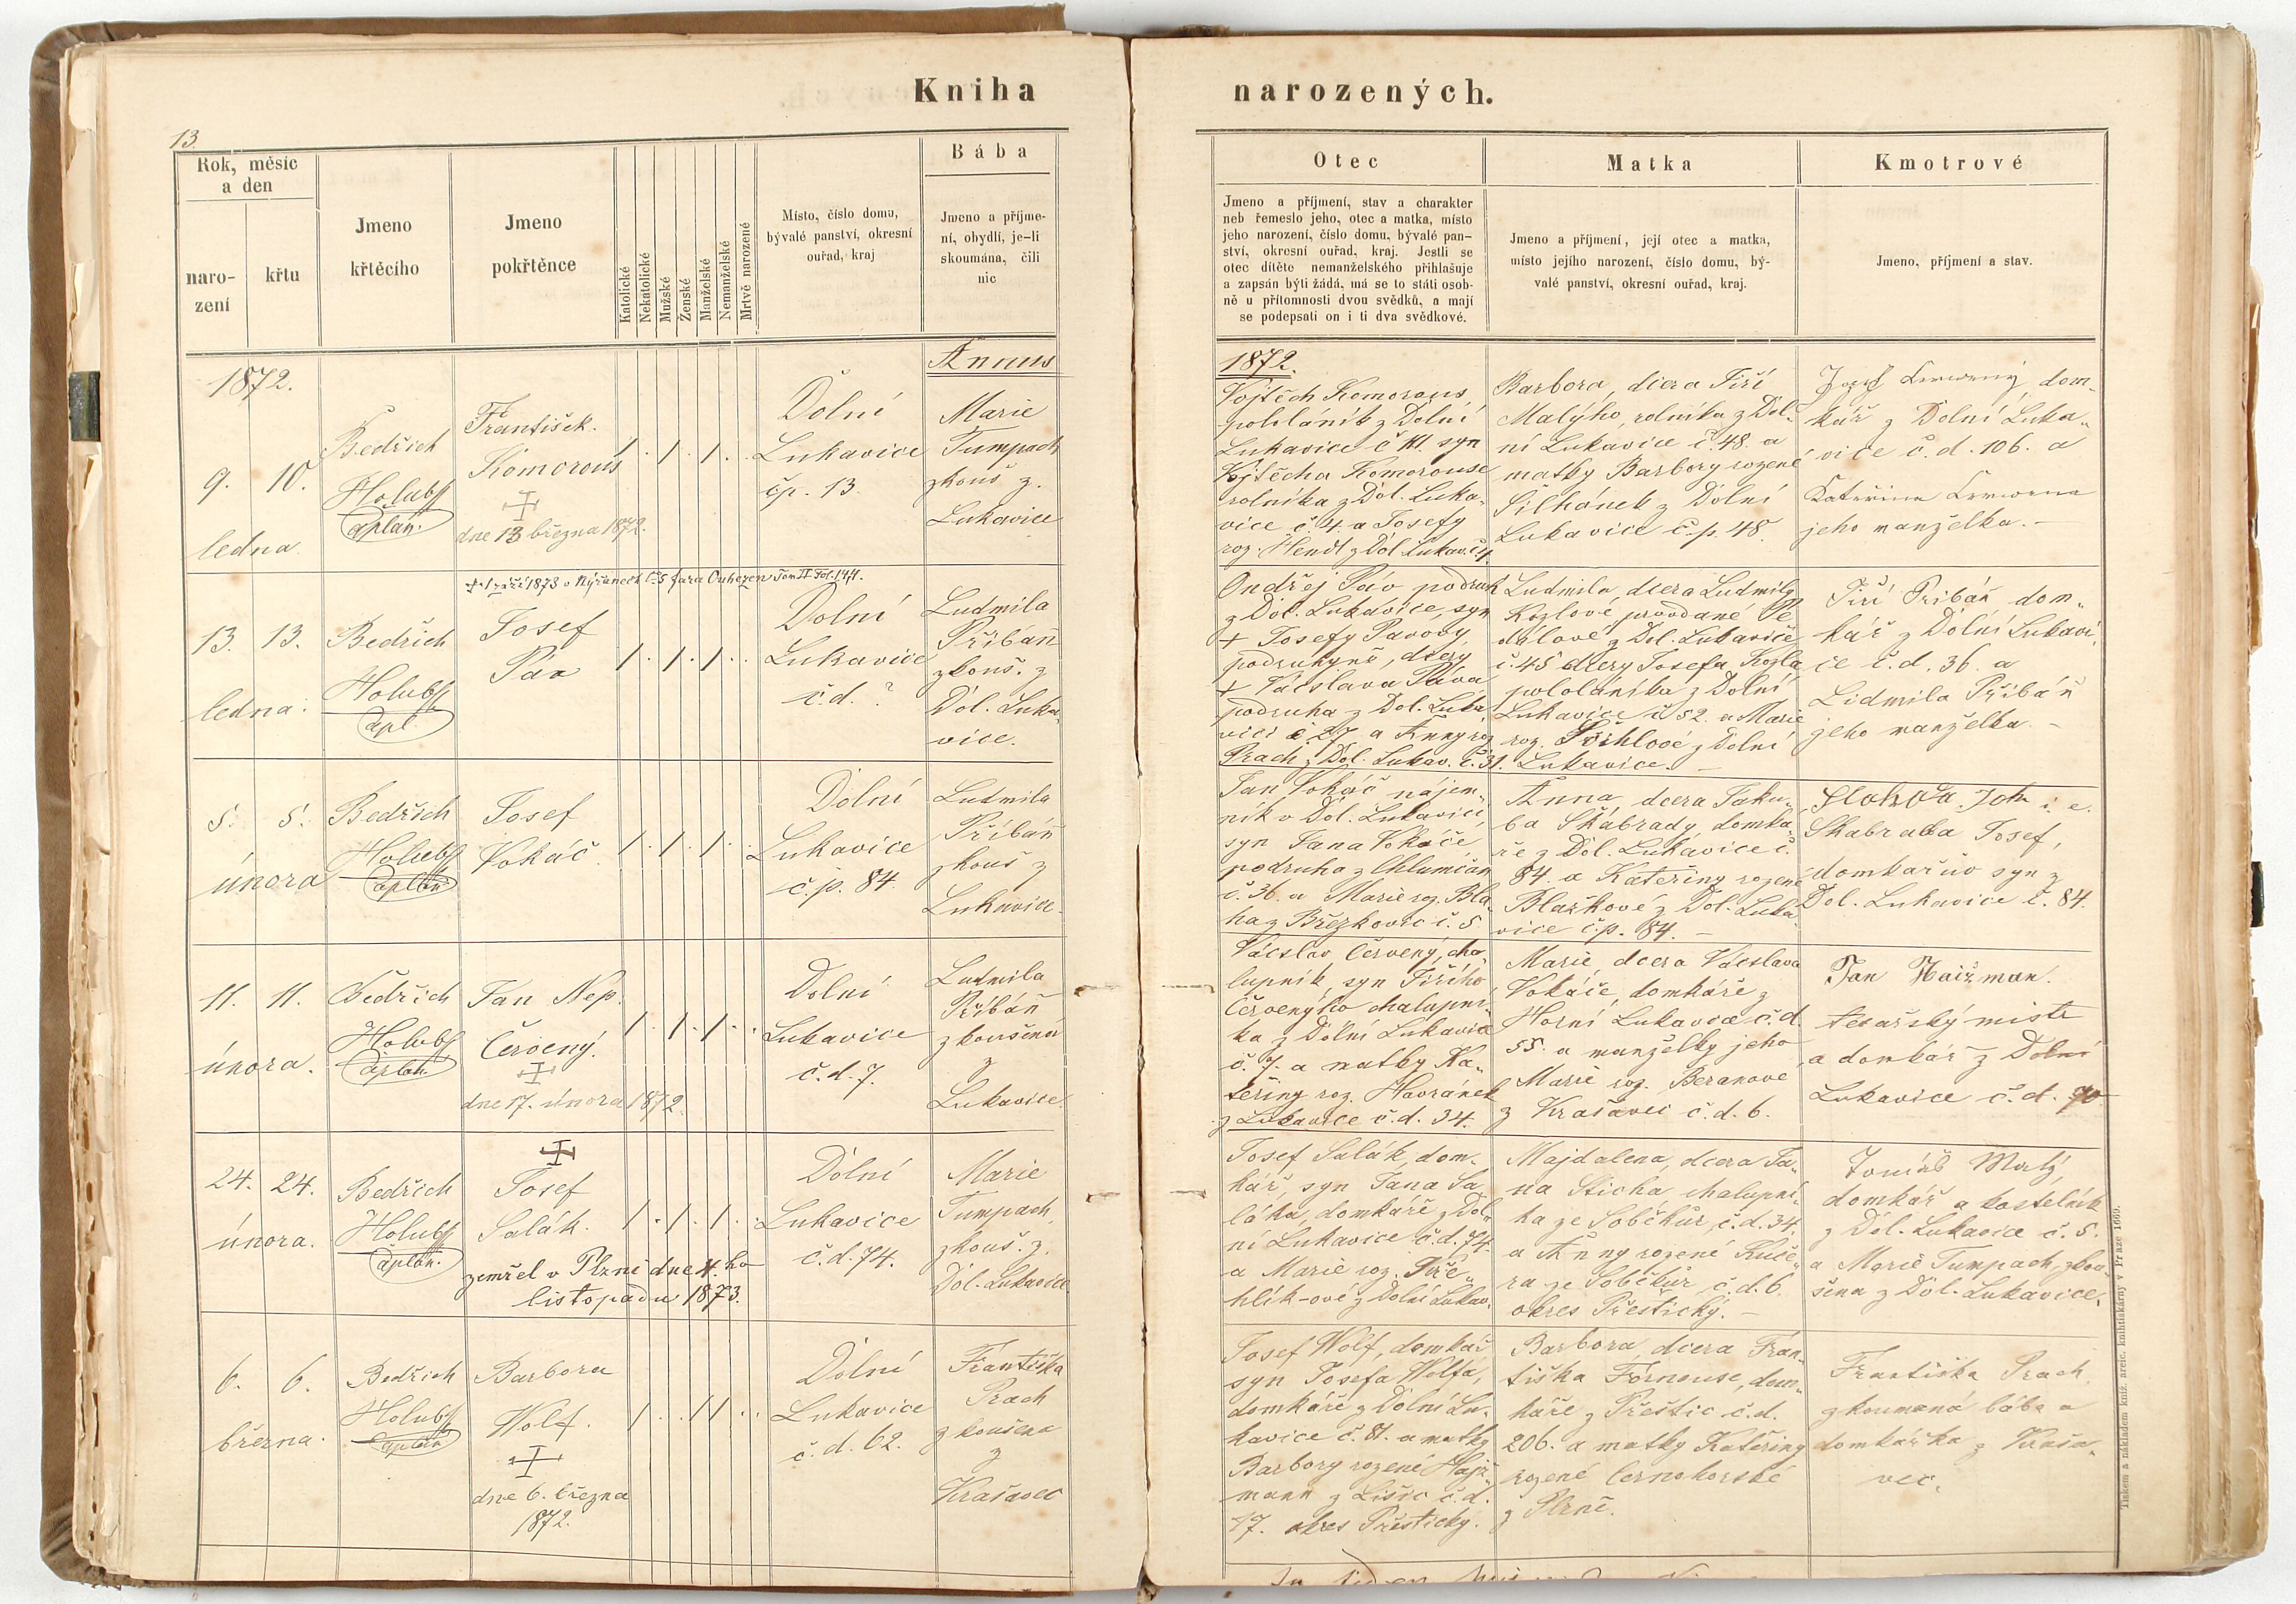 Kniha narozených.
13
Rok, měsíc
a den
naro-
zení
křtu
Jmeno
křtěcího
Jmeno
pokřtěnce
Katolické
Nekatolické
Mužské
Ženské
Manželské
Nemanželské
Mrtvě narozené
Místo, číslo domu,
bývalé panství, okresní
ouřad, kraj
Bába
Jmeno a příjme-
ní, obydlí, je-li
skoumána, čili
nic
Otec
Jmeno a příjmení, stav a charakter
neb řemeslo jeho, otec a matka, místo
jeho narození, číslo domu, bývalé pan-
ství, okresní ouřad, kraj. Jestli se
otec dítěte nemanželského přihlašuje
a zapsán býti žádá, má se to státi osob-
ně u přítomnosti dvou svědků, a mají
se podepsati on i ti dva svědkové.
Matka
Jmeno a příjmení, její otec a matka,
místo jejího narození, číslo domu, bý-
valé panství, okresní ouřad, kraj.
Kmotrové
Jmeno, příjmení a stav.
Annus
1872.
1872.
9. 10.
ledna.
Bedřich
Holub
kaplan.
František.
Komorous
dne 13 března 1872.
Dolní
Lukavice
čp. 13.
Marie
Tumpach
zkouš z.
Lukavice
Vojtěch Komorous,
pololáník z Dolní
Lukavice č. 111. syn
Vojtěcha Komorouse
rolníka z Dol. Luka-
vice č. 4. a Josefy
roz. Hendl z Dol. Lukav. č. 4.
Barbora, dcera Jiří
Malýho, rolníka z Dol-
ní Lukavice č. 48. a
matky Barbory rozené
Silhánek z Dolní
Lukavice č. p. 48.
Josef Červený dom-
kář z Dolní Luka-
vice č. d. 106. a
Kateřina Červena
jeho manželka. -
1 září 1873 v Nýřanech č. 5 fara Ouherzen Tom II Fol. 144.
13. 13.
ledna.
Bedřich
Holub
kapl.
Josef
Páv
Dolní
Lukavice
č. d. ?
Ludmila
Přibáň
zkouš. z
Dol. Luka-
vice.
Ondřej Páv podruh
z Dol. Lukavice, syn
+ Josefy Pavovy,
podruhyně, dcery
+ Václava Páva
podruha z Dol. Luka-
vici č. 27 a Anny roz.
Prach z Dol. Lukav. č. 31.
Ludmila, dcera Ludmily
Kozlové provdané
z Dol. Lukavice
č. 45 dcery Josefa Kozla
pololáníka z Dolní
Lukavice č. 52. a Marie
roz. z Dolní
Lukavice. -
Jiří Přibáň dom-
kář z Dolní Lukavi-
ce č. d. 36. a
Lidmila Přibáň
jeho manželka. -
5. 5.
února
Bedřich
Holub
kaplan
Josef
Vokáč.
Dolní
Lukavice
č. p. 84.
Ludmila
Přibáň
zkouš z
Lukavice.
Jan Vokáč nájem-
ník v Dol. Lukavici,
syn Jana Vokáče,
podruha z Chlumčan
č. 36. a Marie roz. Bla-
ha z Březkovic č. 5
Anna, dcera Jaku-
ba Skabrady, domka-
ře z Dol. Lukavice č.
84. a Kateřiny rozené
Blažkové z Dol. Luka-
vice č. p. 84. -
i. e.
Skabrada Josef,
domkařův syn z
Dol. Lukavice č. 84.
11. 11.
února.
Bedřich
Holub
kaplan.
Jan Nep.
Červený.
dne 17. února 1872.
Dolní
Lukavice
č. d. 7.
Ludmila
Přibáň
zkoušená
z
Lukavice.
Václav Červený, cha-
lupník, syn Jiřího
Červenýho chalupní-
ka z Dolní Lukavice
č. 7. a matky Ka-
teřiny roz. Havránek
z Lukavice č. d. 34.
Marie, dcera Václava
Vokáče, domkáře z
Horní Lukavice č. d.
55. a manželky jeho
Marie roz. Beranové
z Krašavec č. d. 6.
Jan Haizman.
tesařský mistr
a domkář z Dolní
Lukavice č. d. 70
24. 24.
února.
Bedřich
Holub
kaplan.
Josef
Salák.
zemřel v Plzni dne 4. ho
listopadu 1873.
Dolní
Lukavice
č. d. 74.
Marie
Tumpach,
zkouš. z.
Dol. Lukavice
Josef Salák, dom-
kář, syn Jana Sa-
láka, domkáře z Dol-
ní Lukavice č. d. 74.
a Marie roz.
z Dolní Lukav.
Majdalena, dcera Ja-
na Sticha, chalupní-
ka ze Soběkur, č. d. 34.
a Anny rozené Kuče-
ra ze Soběkur č. d. 6.
okres Přestický. -
Tomáš Malý,
domkář a kostelník
z Dol. Lukavice č. 5.
a Marie Tumpach, zkou-
šena z Dol. Lukavice.
6. 6.
března.
Bedřich
Holub
kaplan
Barbora
Wolf.
dne 6. března
1872.
Dolní
Lukavice
č. d. 62.
Františka
Prach
zkoušena
z
Krašavec
Josef Wolf, domkář,
syn Josefa Wolfa,
domkáře z Dolní Lu-
kavice č. 81. a matky
Barbory rozené Hajž-
mann z Lišic č. d.
17. okres Přestický.
Barbora, dcera Fran-
tiška Förnouse, dom-
káře z Přeštic č. d.
206. a matky Kateřiny
rozené Černohorské
z Plzně.
Františka Prach,
zkoumaná bába a
domkářka z Kraša-
vec.
Tiskem a nákladem kníž. arcib. knihtiskárny v Praze 1869.